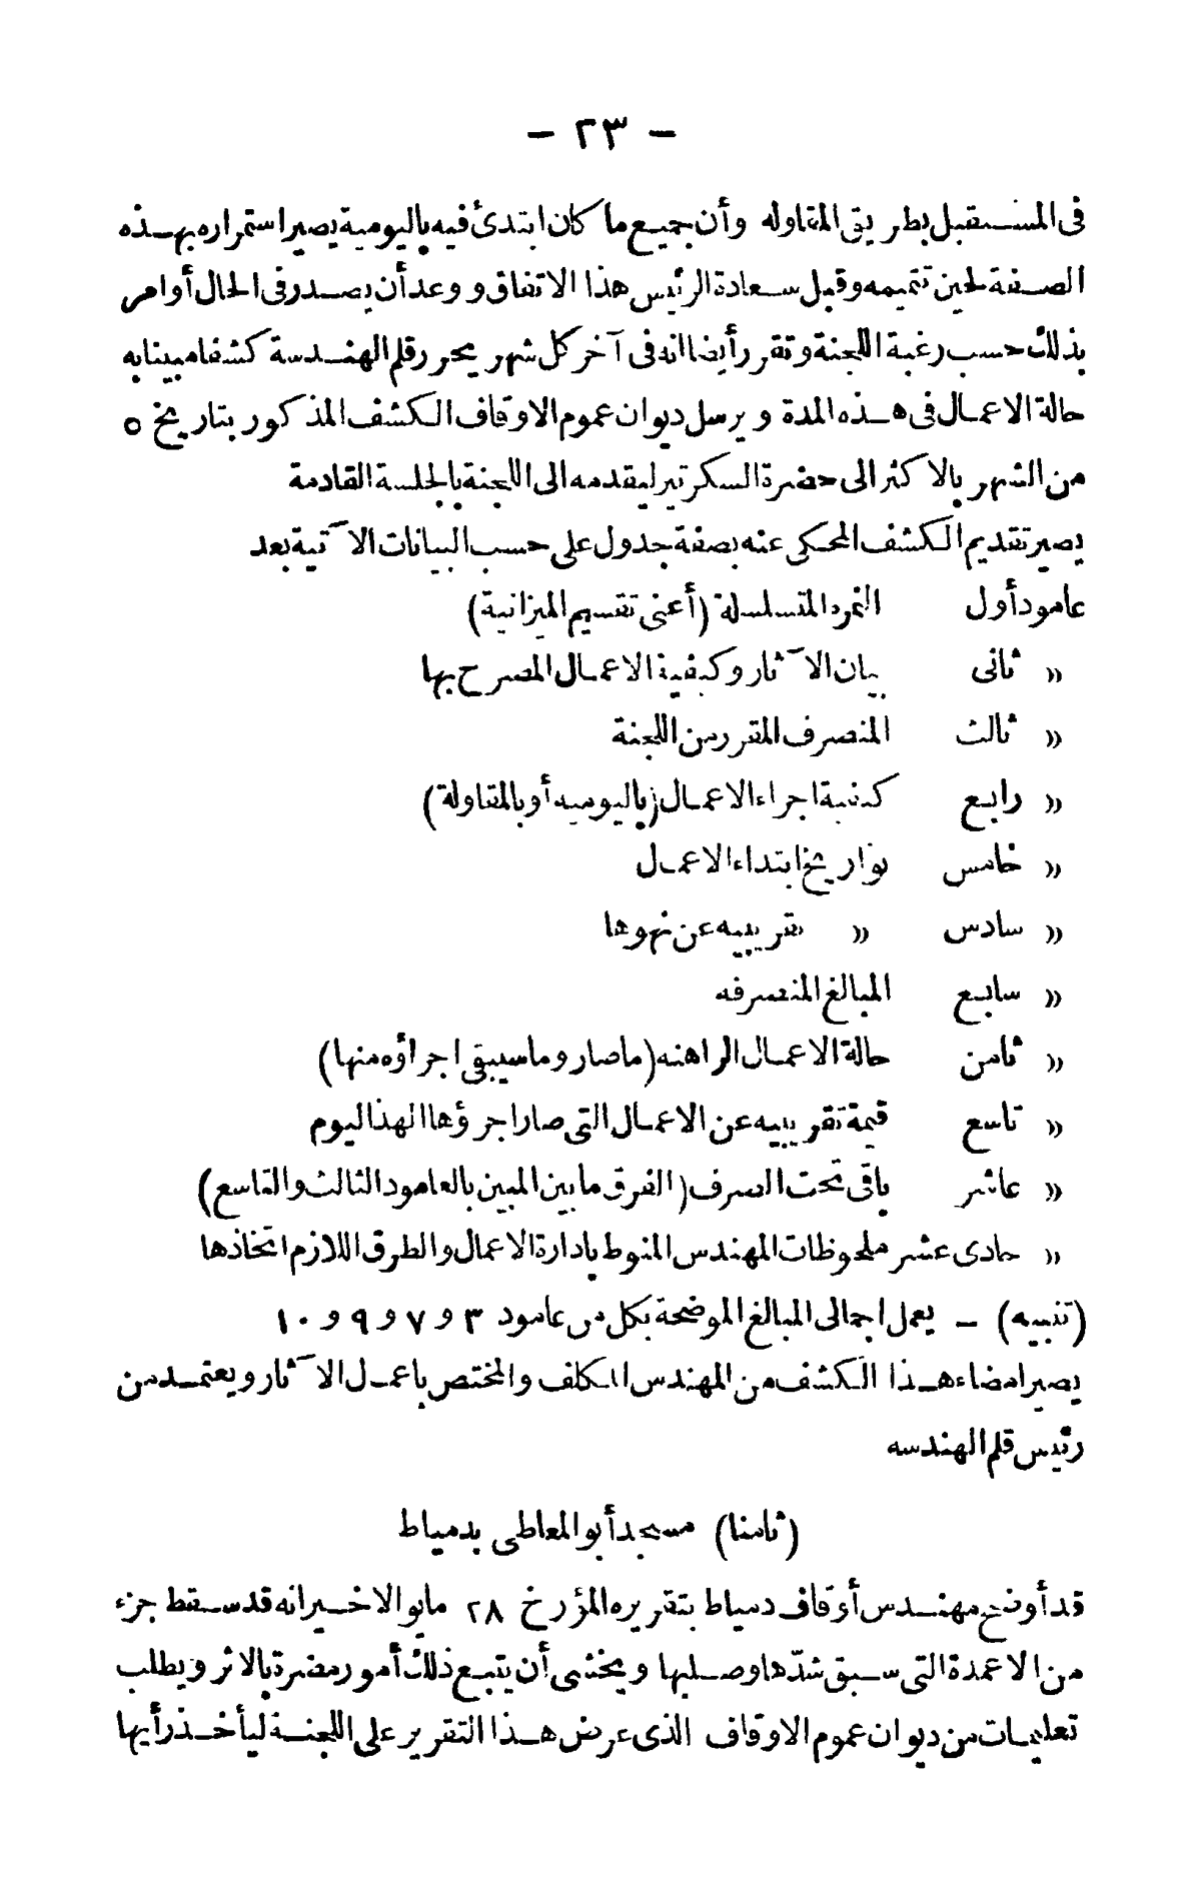 — ٢٣ —
فى المستقبل بطريق المقاوله وأن جميع ما كان ابتدئ فيه باليومية يصير استمراره بهذه
الصفة لحين تتميمه وقبل سعادة الرئيس هذا الاتفاق ووعد أن يصدر فى الحال أوامر
بذلك حسب رغبة اللجنة وتقرر أيضا انه فى آخر كل شهر يحرر قلم الهندسة كشفا مبينا به
حالة الاعمال فى هذه المدة ويرسل ديوان عموم الاوقاف الكشف المذكور بتاريخ ٥
من الشهر بالاكثر الى حضرة السكرتير ليقدمه الى اللجنة بالجلسة القادمة
يصير تقديم الكشف المحكى عنه بصفة جدول على حسب البيانات الآتية بعد
عامود أول النمر المتسلسلة (أعنى تقسيم الميزانية)
« ثانى بيان الآثار وكيفية الاعمال المصرح بها
« ثالث المنصرف المقرر من اللجنة
« رابع كيفية اجراء الاعمال (باليوميه أو بالمقاولة)
« خامس تواريخ ابتداء الاعمال
« سادس « تقريبيه عن نهوها
« سابع المبالغ المنصرفه
« ثامن حالة الاعمال الراهنه (ما صار وما سيبقى اجراؤه منها)
« تاسع قيمة تقريبيه عن الاعمال التى صار اجرؤها الهذا اليوم
« عاشر باقى تحت الصرف (الفرق ما بين المبين بالعامود الثالث والتاسع)
« حادى عشر ملحوظات المهندس المنوط بادارة الاعمال والطرق اللازم اتخاذها
(تنبيه) — يعمل اجمالى المبالغ الموضحة بكل من عامود ٣ و ٧ و ٩ و ١٠
يصير امضاء هذا الكشف من المهندس المكلف والمختص باعمال الآثار ويعتمد من
رئيس قلم الهندسه
(ثامنا) مسجد أبو المعاطى بدمياط
قد أوضح مهندس أوقاف دمياط بتقريره المؤرخ ٢٨ مايو الاخير انه قد سقط جزء
من الاعمدة التى سبق شدّها وصلبها ويخشى أن يتبع ذلك أمور مضرة بالاثر ويطلب
تعليمات من ديوان عموم الاوقاف الذى عرض هذا التقرير على اللجنة ليأخذ رأيها